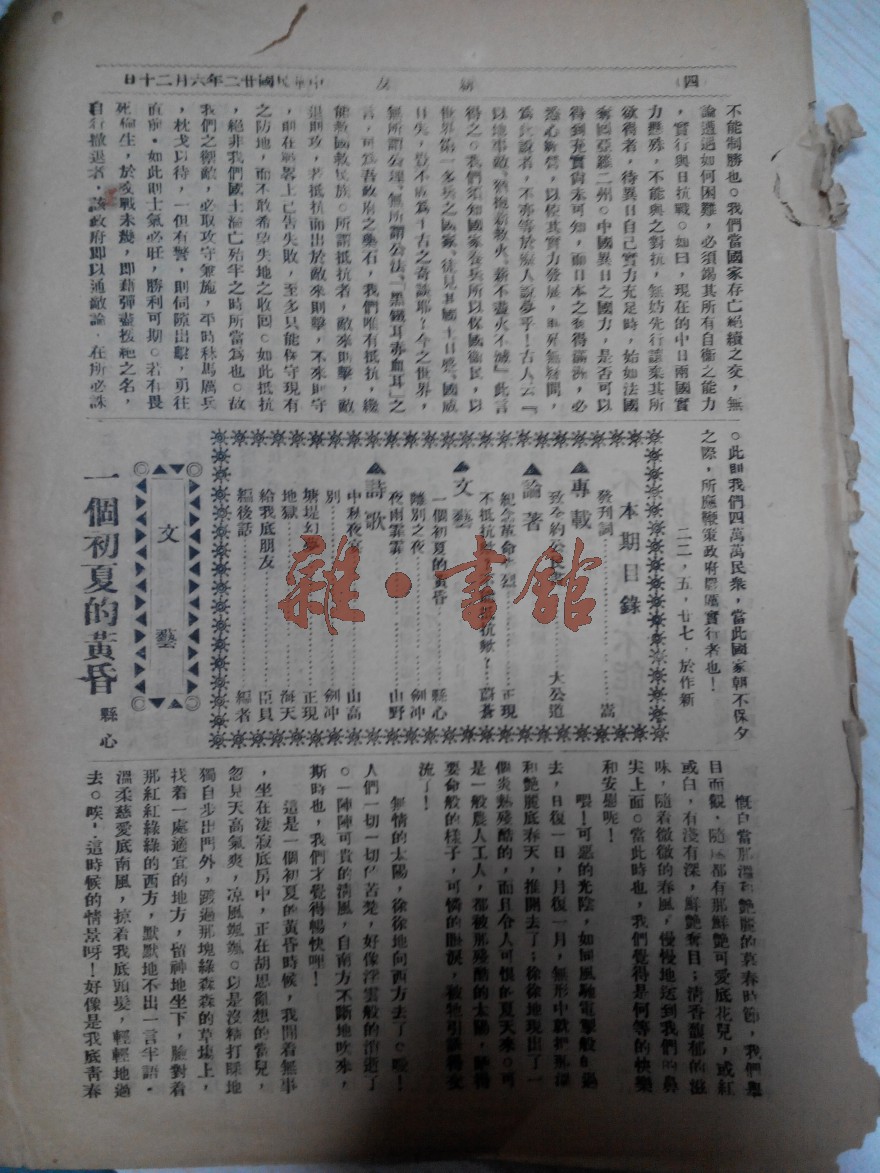 中華民國廿二年六月二十日
四
不能制勝也。我們當國家存亡絕續之交,無
論遭遇如何困難,必須竭其所有自衛之能力
,實行與日抗戰。如曰,現在的中日兩國實
力懸殊,不能與之對抗,無妨先行讓棄其所
欲得者,待異日自己實力充足時,始如法國
奪回亞羅二州。中國異日之國力,是否可以
得到充實尚未可知,而日本之奪得滿洲,必
悉心經營,以極其實力發展,
為此說者,不亦等於痴人說夢乎!古人云『
以地事敵,猶抱薪救火,薪不盡火不滅』此言
得之。我們須知國家養兵所以保國衛民,以
世界第一多兵之國家,徒見其國土日蹙,國威
日失,豈不成為千古之奇談耶?今之世界,
無所謂公理,無所謂公法,『黑鐵耳赤血耳』之
言,可為吾政府之藥石,我們唯有抵抗,纔
能救國救民族。所謂抵抗者,敵來則擊,敵
退則攻,若抵抗而出於敵來則擊,不來則守
,則在戰畧上已告失敗,至多只能保守現有
之防地,而不敢希望失地之收回。如此抵抗
,絕非我們國土淪亡殆半之時所當為也。故
我們之禦敵,必取攻守兼施,平時秣馬厲兵
,枕戈以待,一但有警,則伺隙出擊,勇往
直前。如此則士氣必旺,勝利可期。若有畏
死偷生,於交戰未幾,即藉彈盡援絕之名,
自行撤退者,該政府即以通敵論,在所必誅
。此則我們四萬萬民衆,當此國家朝不保夕
之際,所應鞭策政府厲實行者也!
二二,五,廿七,於作新
本期目錄
發刊詞………嵩
▲專載
致……大公道
▲論著
紀念革命先烈……正現
不抵抗歟?抵抗歟?……蔚蒼
▲文藝
一個初夏的黃昏……縣心
離別之夜……劍冲
夜雨霏霏……山野
▲詩歌
中秋夜……山高
別……劍冲
塘堤幻……正現
地獄……海天
給我底朋友……臣員
編後話……編者
雜·書館
文藝
一個初夏的黃昏
縣心
慨自當那溫和艷麗的暮春時節,我們舉
目而觀,隨處都有那鮮艷可愛底花兒;或紅
或白,有淺有深,鮮艷奪目;清香馥郁的滋
味,隨着微微的春風,慢慢地送到我們的鼻
尖上面。當此時也,我們覺得是何等的快樂
和安慰呢!
喂!可惡的光陰,如同風馳電掣般的過
去,日復一日,月復一月,無形中就把那溫
和艷麗底春天,推開去了;徐徐地現出了一
個炎熱殘酷的,而且令人可恨的夏天來。可
是一般農人工人,都被那殘酷的太陽,
要命般的樣子,可憐的眼淚,被牠引
流了!
無情的太陽,徐徐地向西方去了。唉!
人們一切一切的苦楚,好像浮雲般的消逝了
。一陣陣可貴的清風,自南方不斷地吹來,
斯時也,我們才覺得暢快哩!
這是一個初夏的黃昏時候,我閒着無事
,坐在凄寂底房中,正在胡思亂想的當兒,
忽見天高氣爽,涼風颯颯。以是沒精打睬地
獨自步出門外,踱過那塊綠森森的草場上,
找着一處適宜的地方,留神地坐下,臉對着
那紅紅綠綠的西方,默默地不出一言半語。
溫柔慈愛底南風,掠着我底頭髮,輕輕地過
去。唉,這時候的情景呀!好像是我底靑春